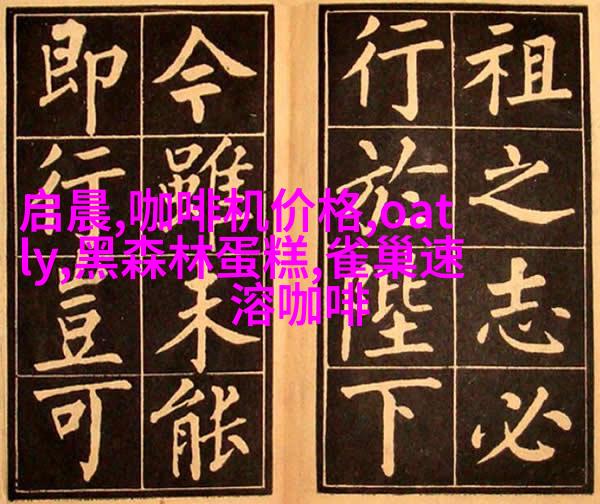 祖之志必
行於陛下
今雖未能
即行豈可
启晨,咖啡机价格,oat
ly,黑森林蛋糕,雀巢速
溶咖啡